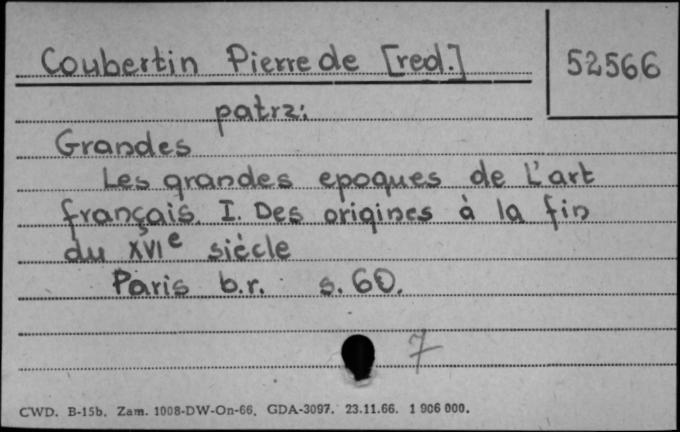 Coubertin Pierre de [red.]
52566
patrz:
Grandes
Les grandes epoques de L'art
français. I. Des origines à la fin
du XVIe siècle
Paris b.r. s. 60.
7
CWD. B-15b. Zam. 1008-DW-On-66. GDA-3097. 23.11.66. 1 906 000.